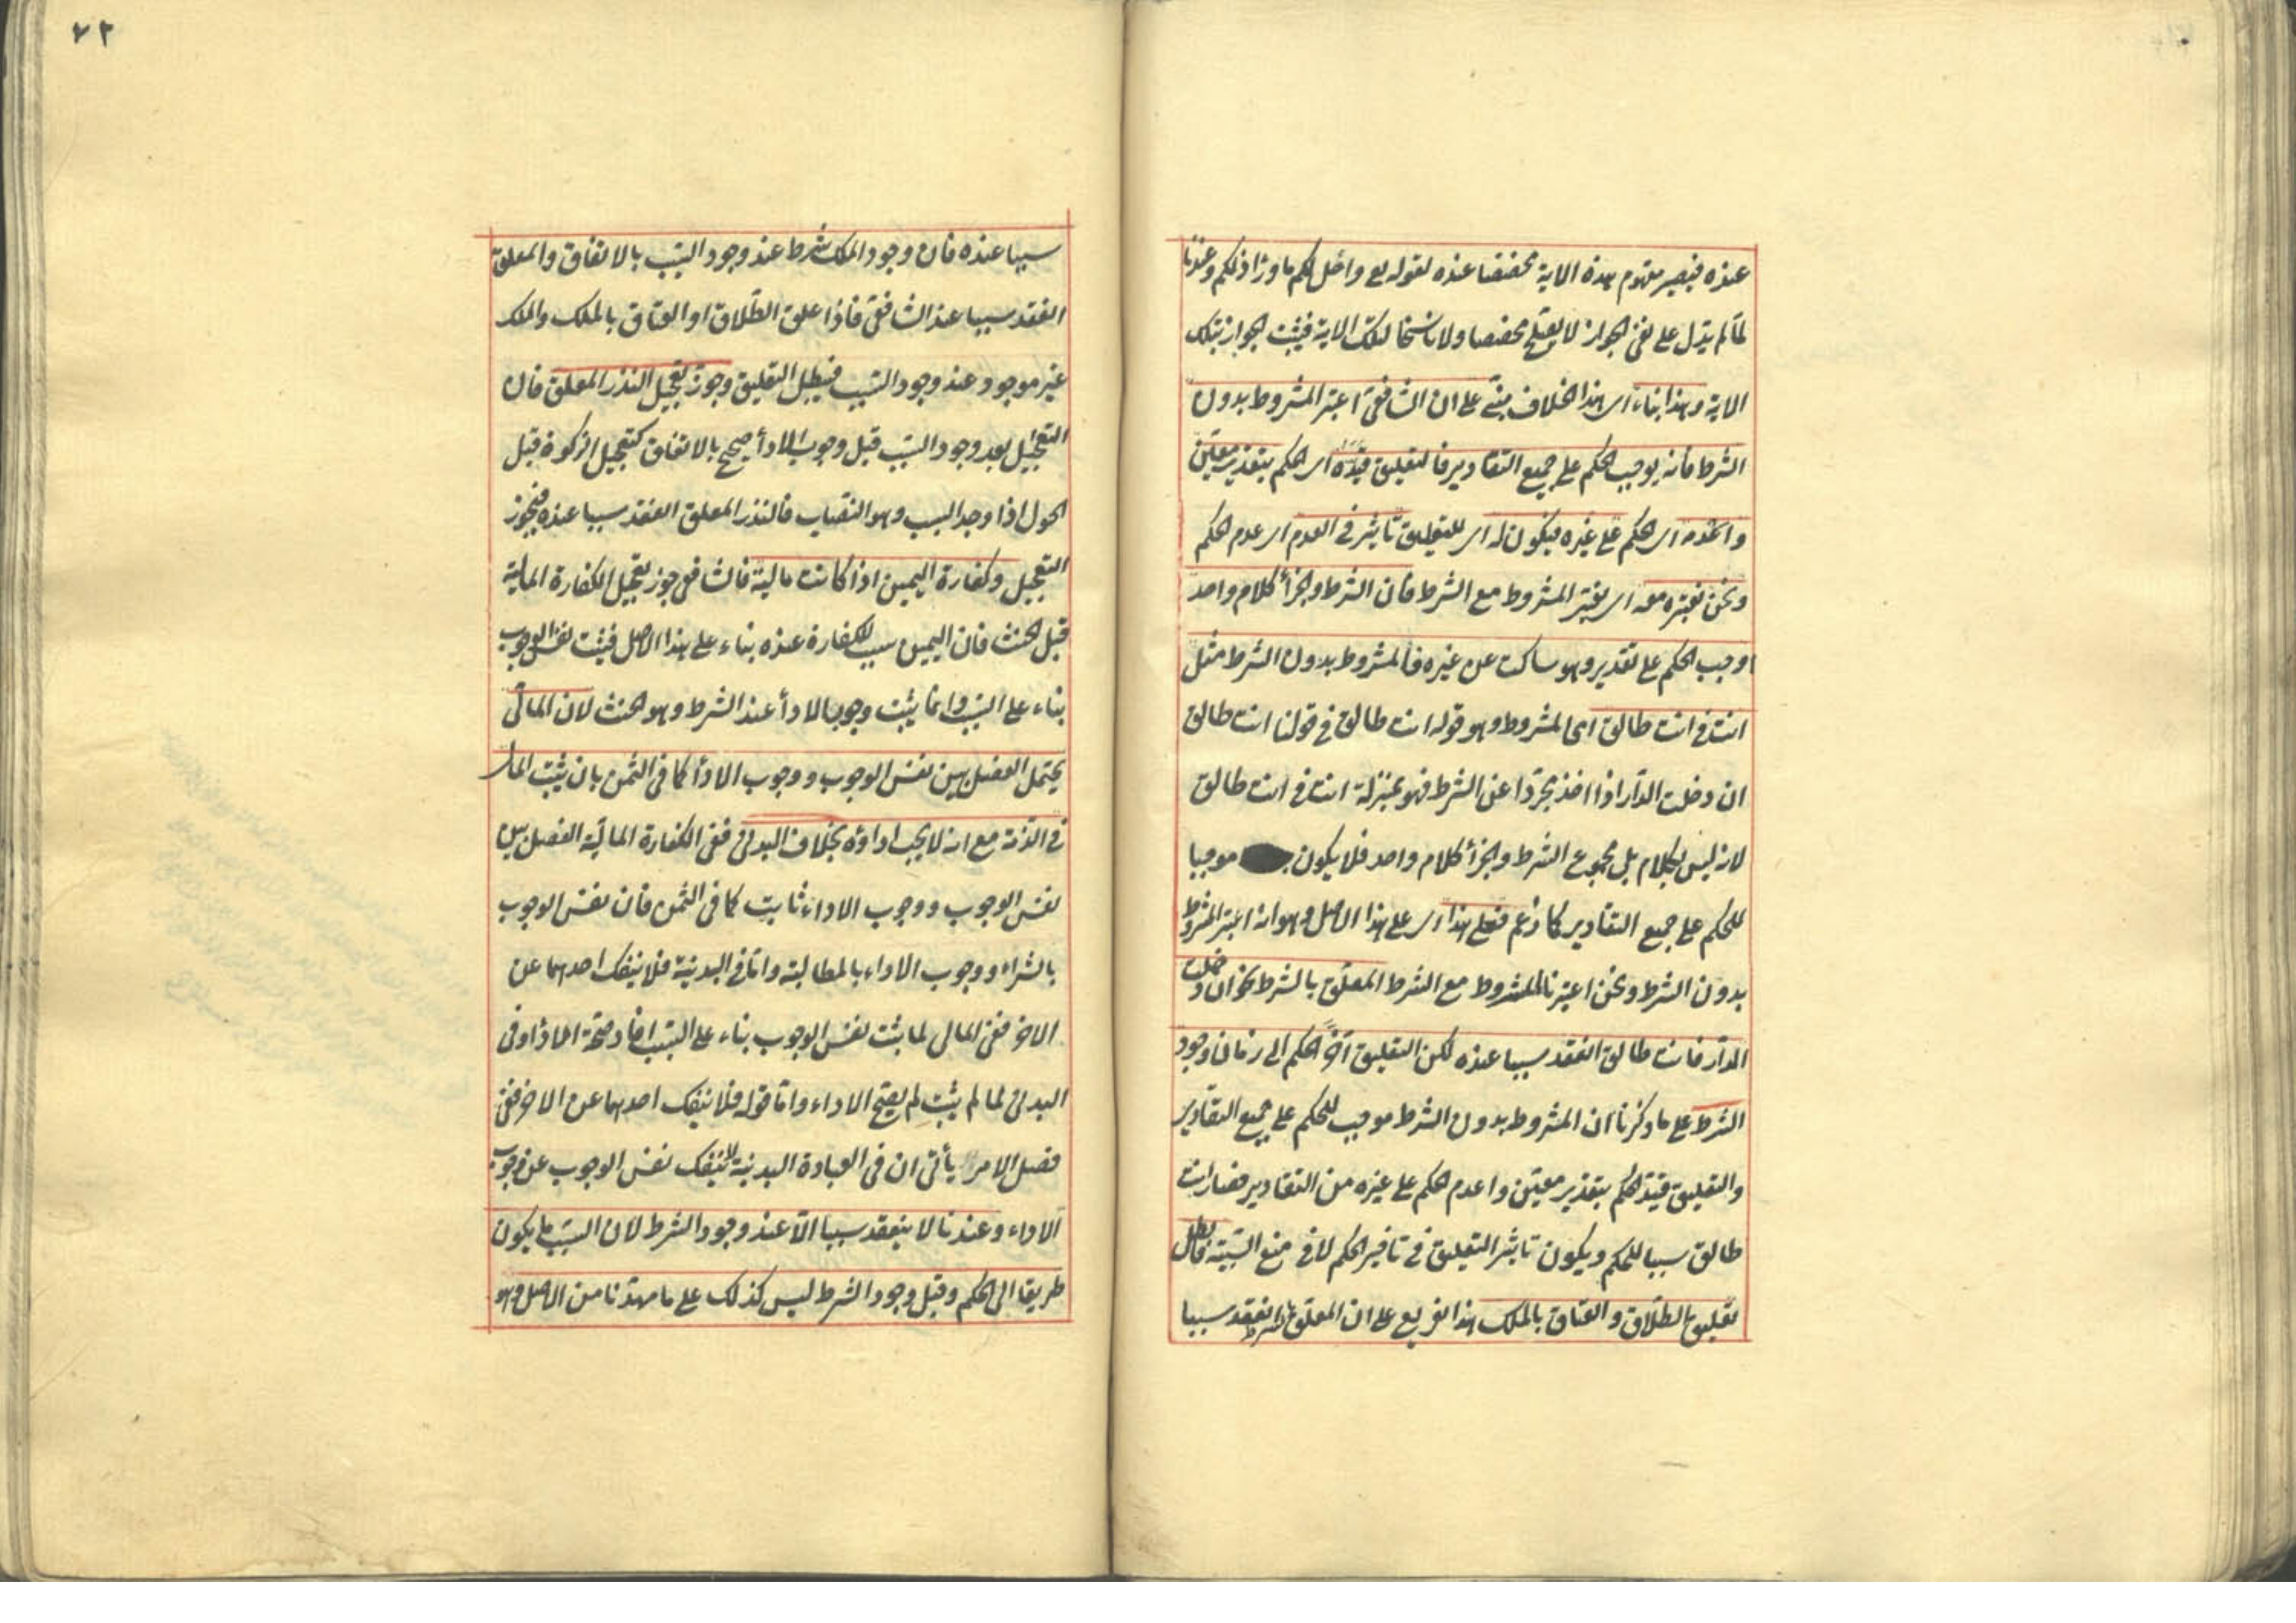 عنده فيصير مفهوم هذه الاية مخصصا عنده لقوله تع واحل لكم ما ورٰا ذلكم وعندنا
لما لم يدل على نفى الجواز لا يصلح مخصصا ولا ناسخا لتلك الاية فيثبت الجواز بتلك
الاية وهذا بناء اى هذا الخلاف مبنى على ان الشافعى اعتبر المشروط بدون
الشرط فانه يوجب الحكم على جميع التقادير فالتعليق قيده اى الحكم بتقدير معين
واعدمه اى الحكم على غيره فيكون له اى للتعليق تاثير فى العدم اى عدم الحكم
ونحن نعتبره معه اى نعتبر المشروط مع الشرط فان الشرط والجزأ كلام واحد
اوجب الحكم على تقدير وهو ساكت عن غيره فالمشروط بدون الشرط مثل
انت فى انت طالق اى المشروط وهو قوله انت طالق فى قولنا انت طالق
ان دخلت الدار اذا اخذ مجردا عن الشرط فهو بمنزلة انت فى انت طالق
لانه ليس بكلام بل مجموع الشرط والجزأ كلام واحد فلا يكون موجبا
للحكم على جميع التقادير كما زعم فعلى هذا اى على هذا الاصل وهو انه اعتبر المشروط
بدون الشرط ونحن اعتبرنا المشروط مع الشرط المعلق بالشرط نحو ان دخلت
الدار فانت طالق انعقد سببا عنده لكن التعليق اخر الحكم الى زمان وجود
الشرط على ما ذكرنا ان المشروط بدون الشرط موجب للحكم على جميع التقادير
والتعليق قيد الحكم بتقدير معين واعدم الحكم على غيره من التقادير فصار انت
طالق سببا للحكم ويكون تاثير التعليق فى تاخير الحكم لا فى منع السببية فابطل
تعليق الطلاق والعتاق بالملك هذا تفريع على ان المعلق بالشرط انعقد سببا
٧٢
سببا عنده فان وجود الملك شرط عند وجود السبب بالاتفاق والمعلق
انعقد سببا عند الشافعى فاذا علق الطلاق او العتاق بالملك والملك
غير موجود عند وجود السبب فيبطل التعليق وجوز تعجيل النذر المعلق فان
التعجيل بعد وجود السبب قبل وجوب الادأ صحيح بالاتفاق كتعجيل الزكوة قبل
الحول اذا وجد السبب وهو النصاب فالنذر المعلق انعقد سببا عنده فيجوز
التعجيل وكفارة اليمين اذا كانت مالية فالشافعى جوز تعجيل الكفارة المالية
قبل الحنث فان اليمين سبب للكفارة عنده بناء على هذا الاصل فيثبت نفس الوجوب
بناء على السبب وانما يثبت وجوب الادأ عند الشرط وهو الحنث لان المالى
يحتمل الفصل بين نفس الوجوب ووجوب الادأ كما فى الثمن بان يثبت المال
فى الذمة مع انه لا يجب اداؤه بخلاف البدنى ففى الكفارة المالية الفصل بين
نفس الوجوب ووجوب الاداء ثابت كما فى الثمن فان نفس الوجوب
بالشراء ووجوب الاداء بالمطالبة واما فى البدنية فلا ينفك احدهما عن
الاخر ففى المال لما ثبت نفس الوجوب بناء على السبب افاد صحة الادأ وفى
البدنى لما لم يثبت لم يصح الاداء واما قوله فلا ينفك احدهما عن الاخر ففى
فصل الامر يأتى ان فى العبادة البدنية لا ينفك نفس الوجوب عن وجوب
الاداء وعندنا لا ينعقد سببا الا عند وجود الشرط لان السبب ما يكون
طريقا الى الحكم وقبل وجود الشرط ليس كذلك على ما مهدنا من الاصل وهو